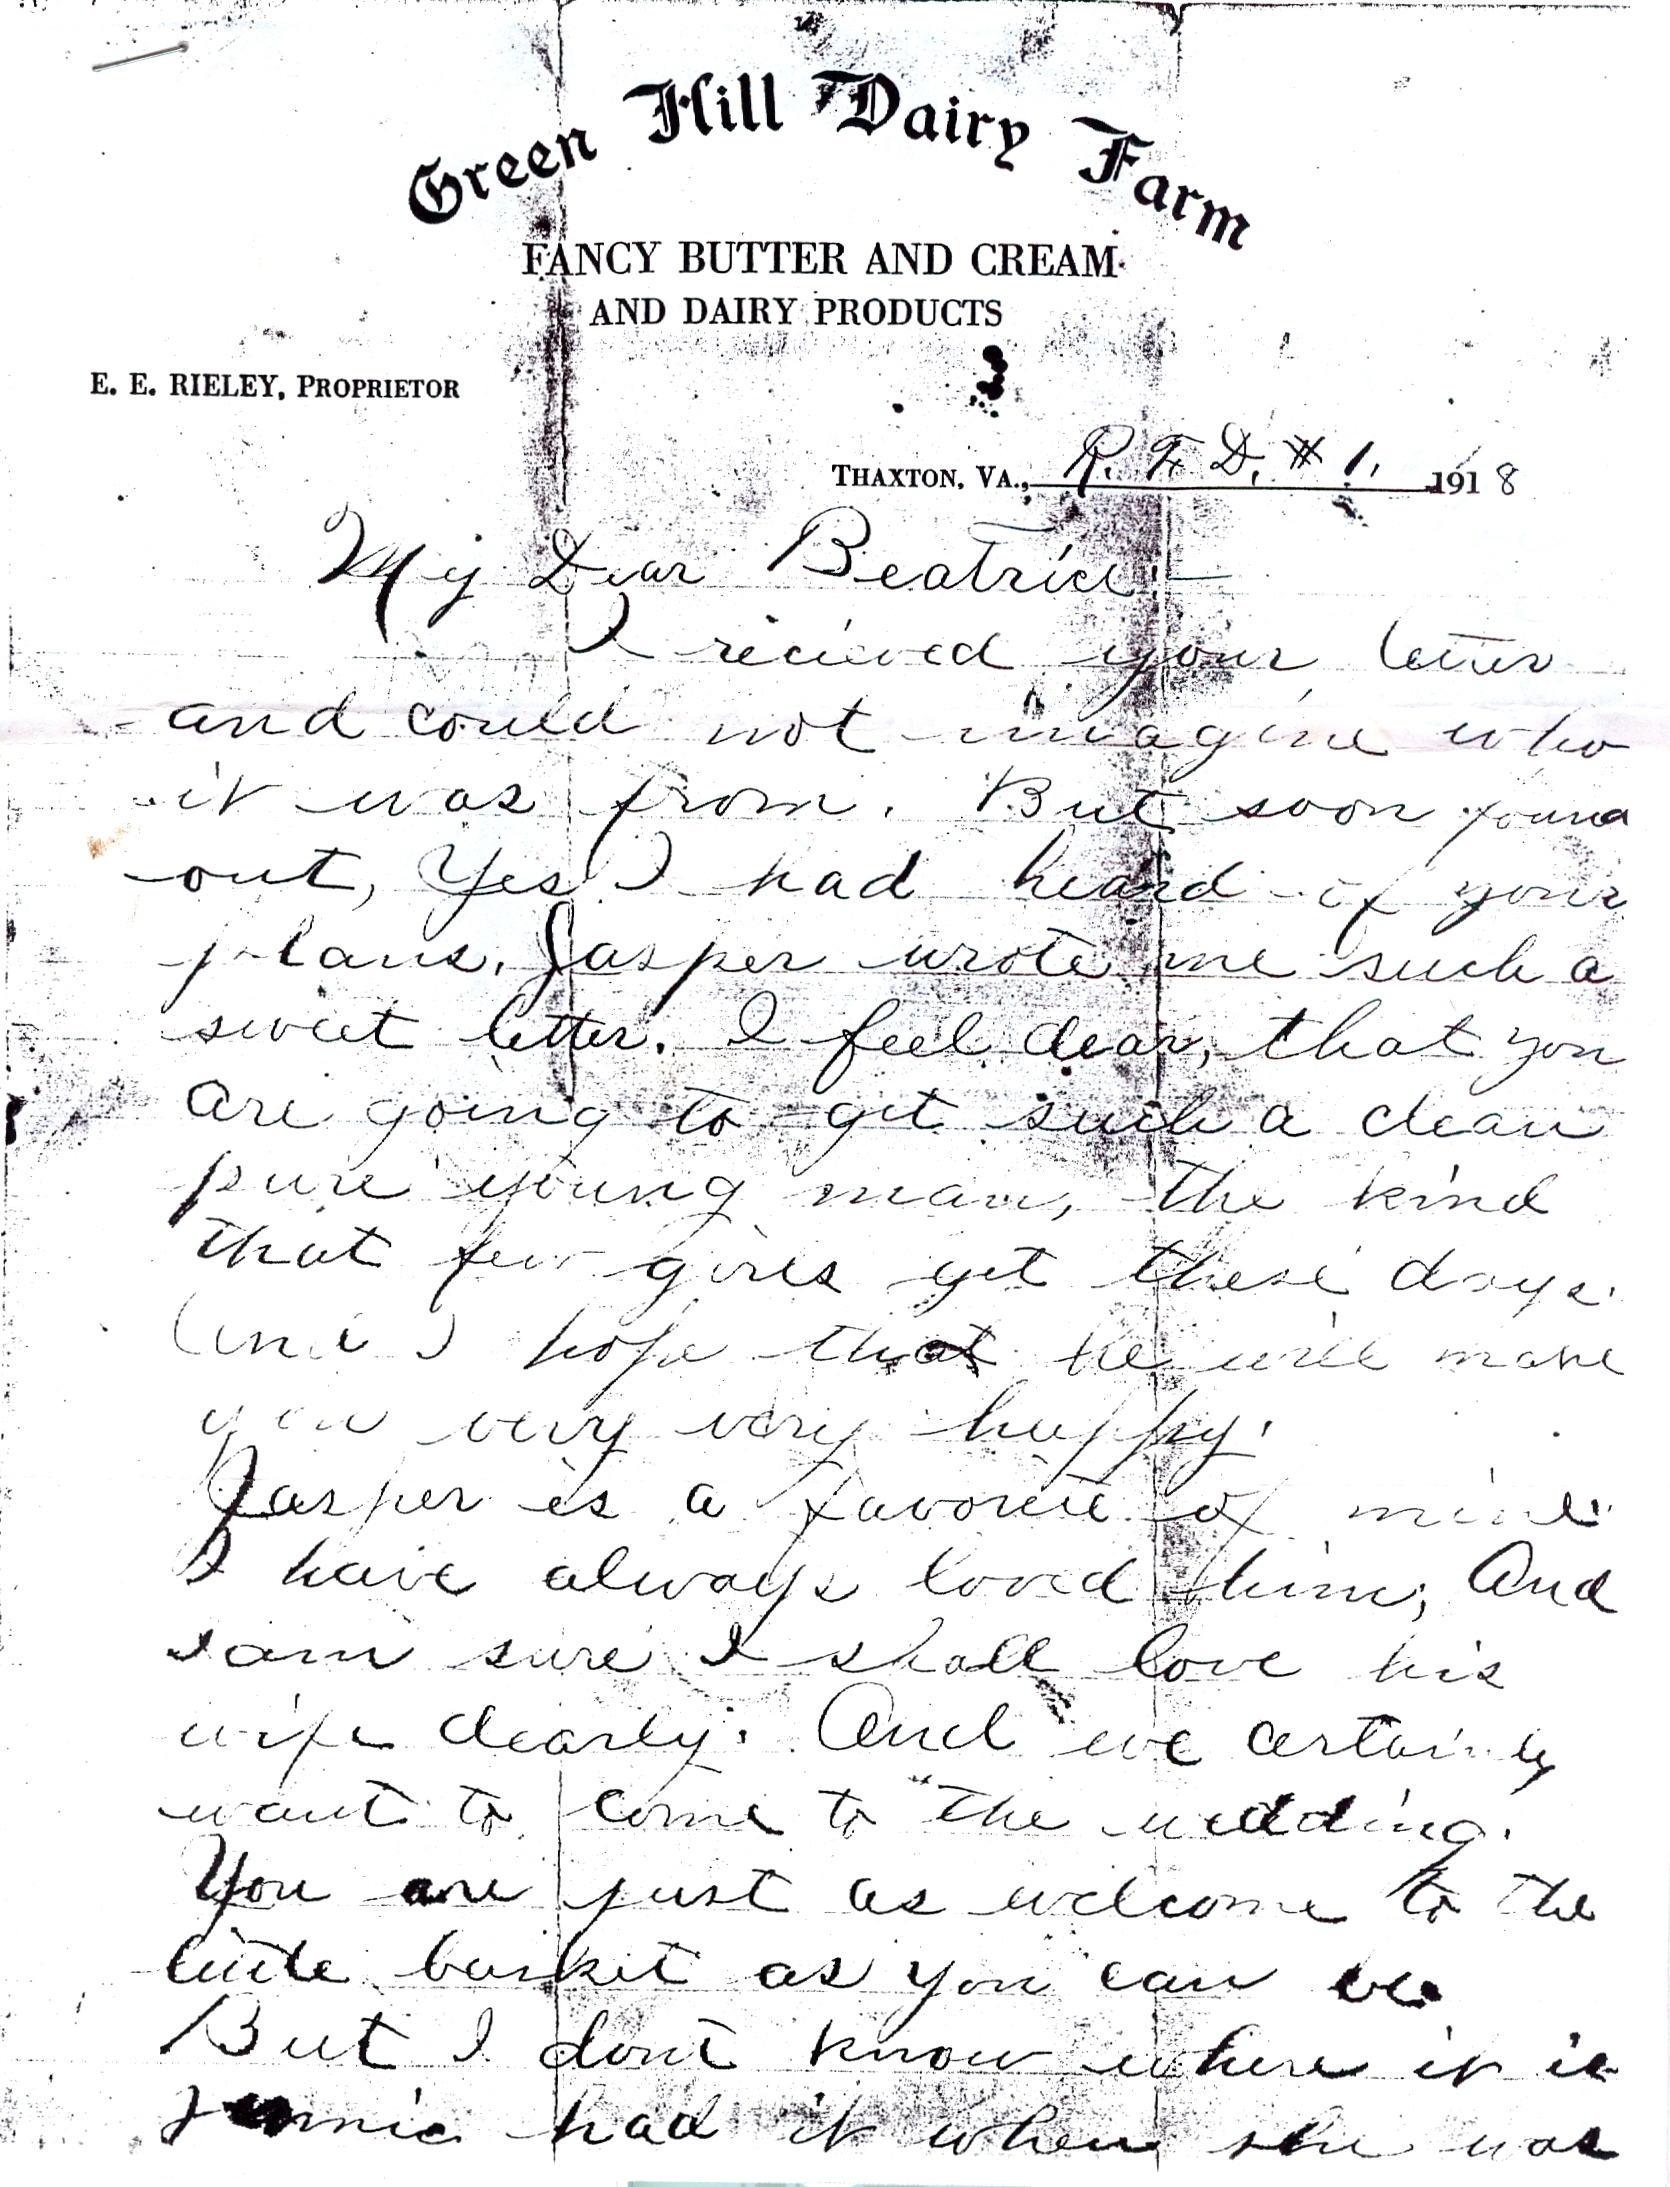 Green Hill Dairy Farm
FANCY BUTTER AND CREAM
AND DAIRY PRODUCTS
E. E. RIELEY, PROPRIETOR
THAXTON, VA., R. F. D. # 1. 1918
My Dear Beatrice:—
I recieved your letter
and could not imagine who
it was from. But soon found
out, Yes I had heard of your
plans. Jasper wrote me such a
sweet letter. I feel dear, that you
are going to get such a clean
pure young man, the kind
that few girls get these days.
(and I hope that he will make
you very very happy.
Jasper is a favorite of mine
I have always loved him, And
I am sure I shall love his
wife dearly. And we certainly
want to come to the wedding.
You are just as welcome to the
little basket as you can be
But I dont know where it is
had it when she was